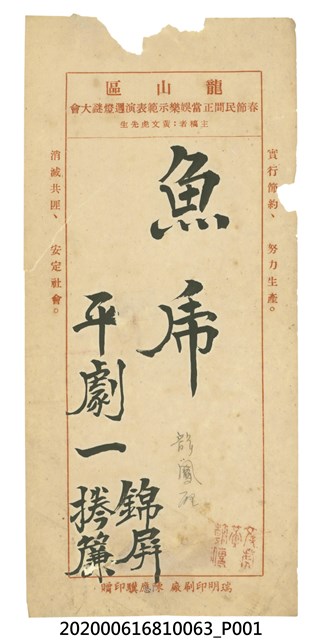 龍山區
春節民間正當娛樂示範表演選燈謎大會
主稿者：黃文虎先生
實行節約、 努力生產。
魚 虎
龍鳳配
平劇一
錦屏
捲簾
消滅共匪、 安定社會。
瑞明印刷廠 陳應驥印贈
202000616810063_P001